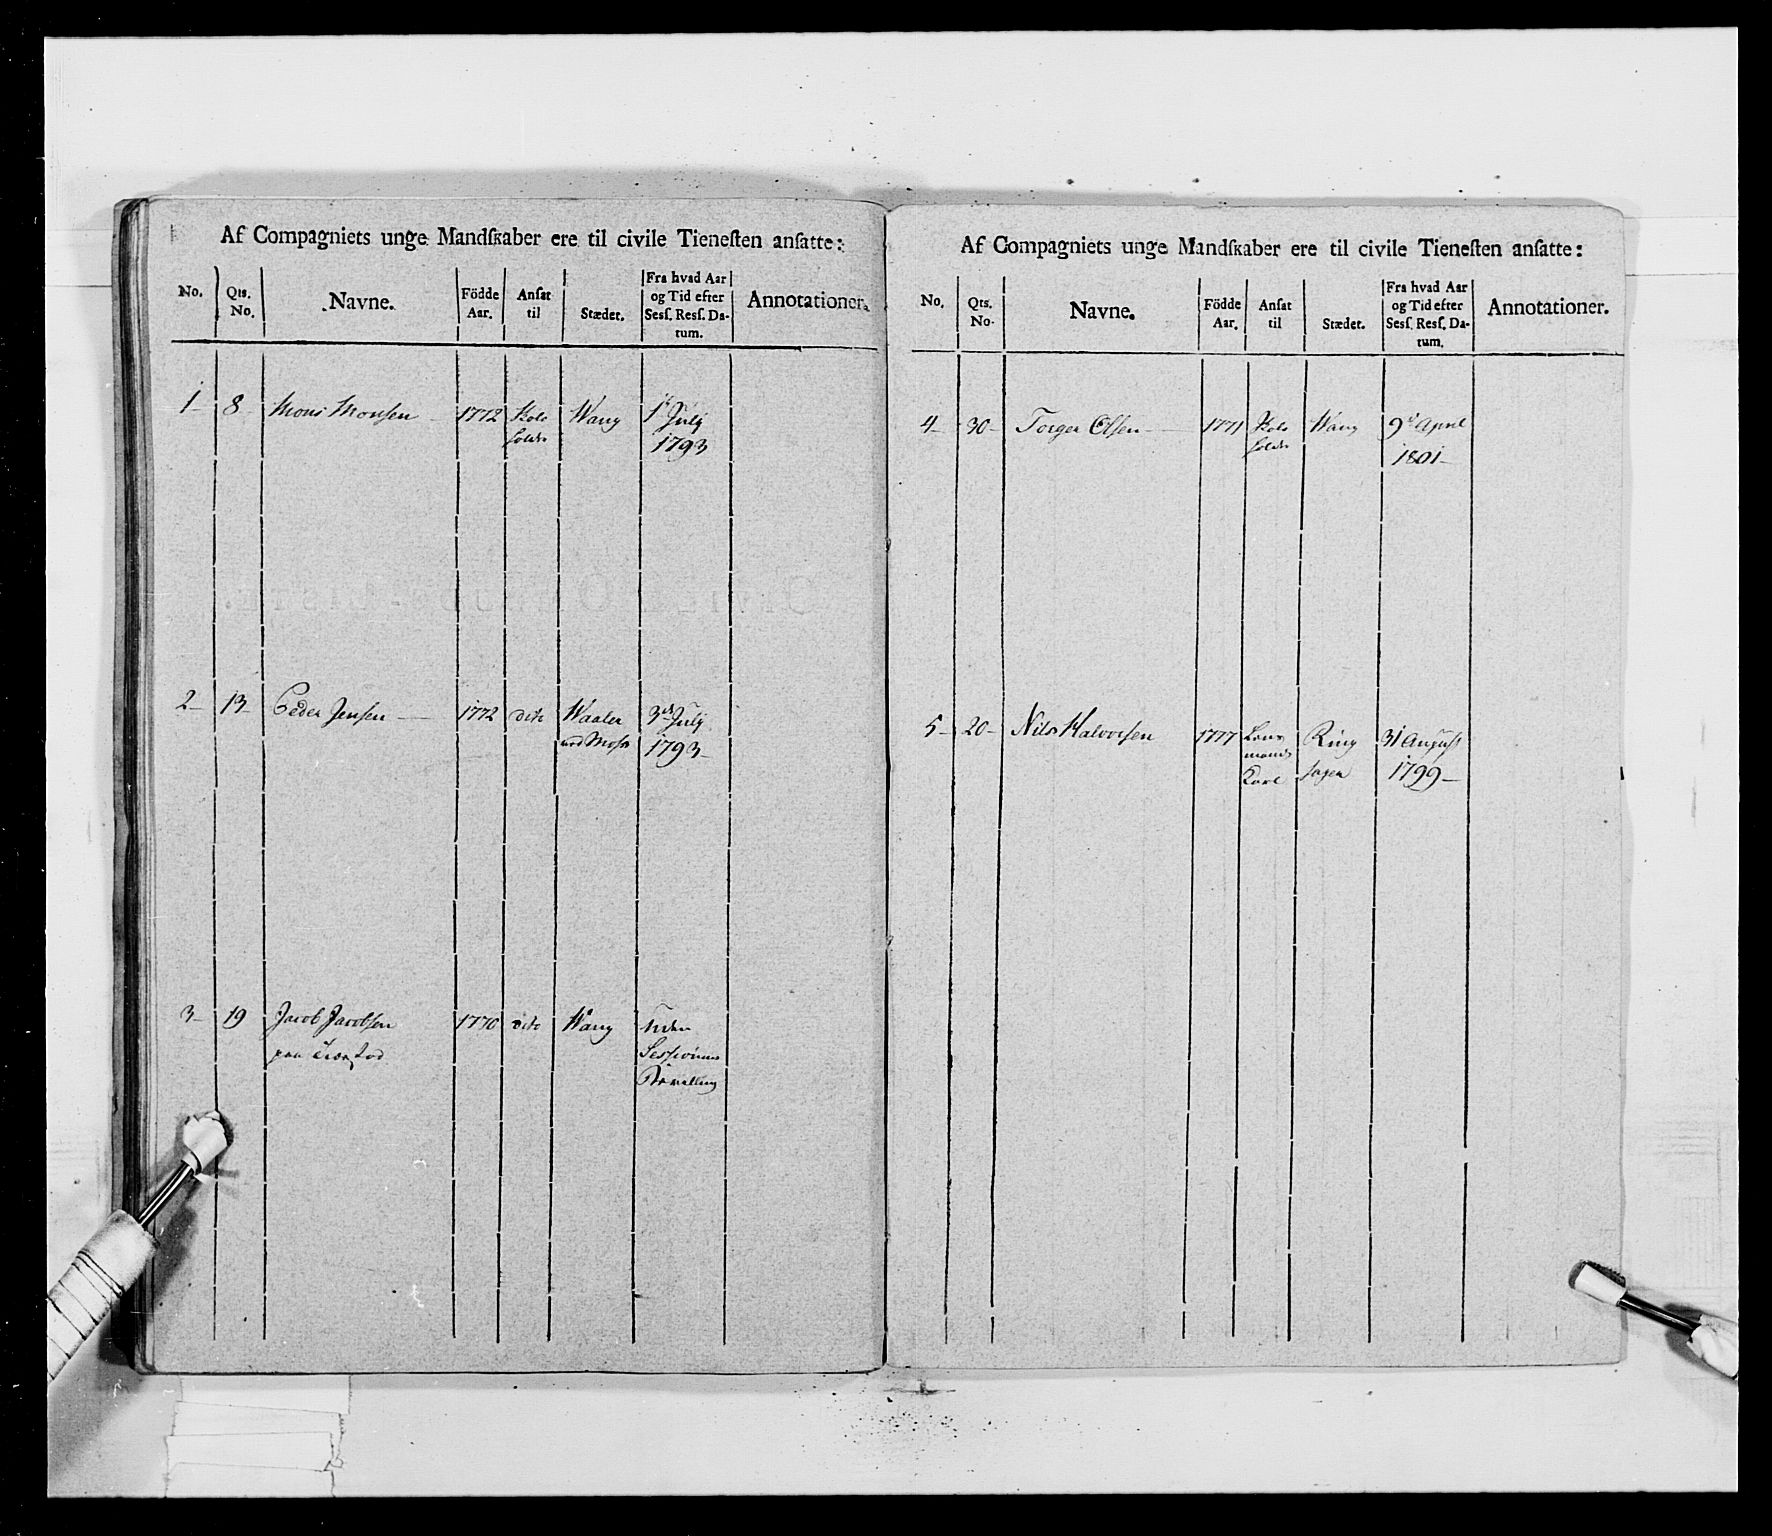 Af Compagniets unge Mandſkaber ere til civile Tieneſten anſatte:
No. Qts. No. Navne. Födde Aar. Anſat til Stædet. Fra hvad Aar og Tid efter Sesſ. Resſ. Datum. Annotationer.
1 8 Mons Monsen 1772 Wang 1te July
1793
2 13 Peder Jensen 1772 dito Waaler 3de July
ved Moss 1793
3 19 Jacob Jacobsen 1770 dito Wang uden
Sessions
Af Compagniets unge Mandſkaber ere til civile Tieneſten anſatte:
No. Qts. No. Navne. Födde Aar. Anſat til Stædet. Fra hvad Aar og Tid efter Sesſ. Resſ. Datum. Annotationer.
4 30 Torger Olsen 1771 Wang 9de April
1801
5 20 Nils Halvorsen 1777 Lens Ring 31 August
mands sager 1799
Karl